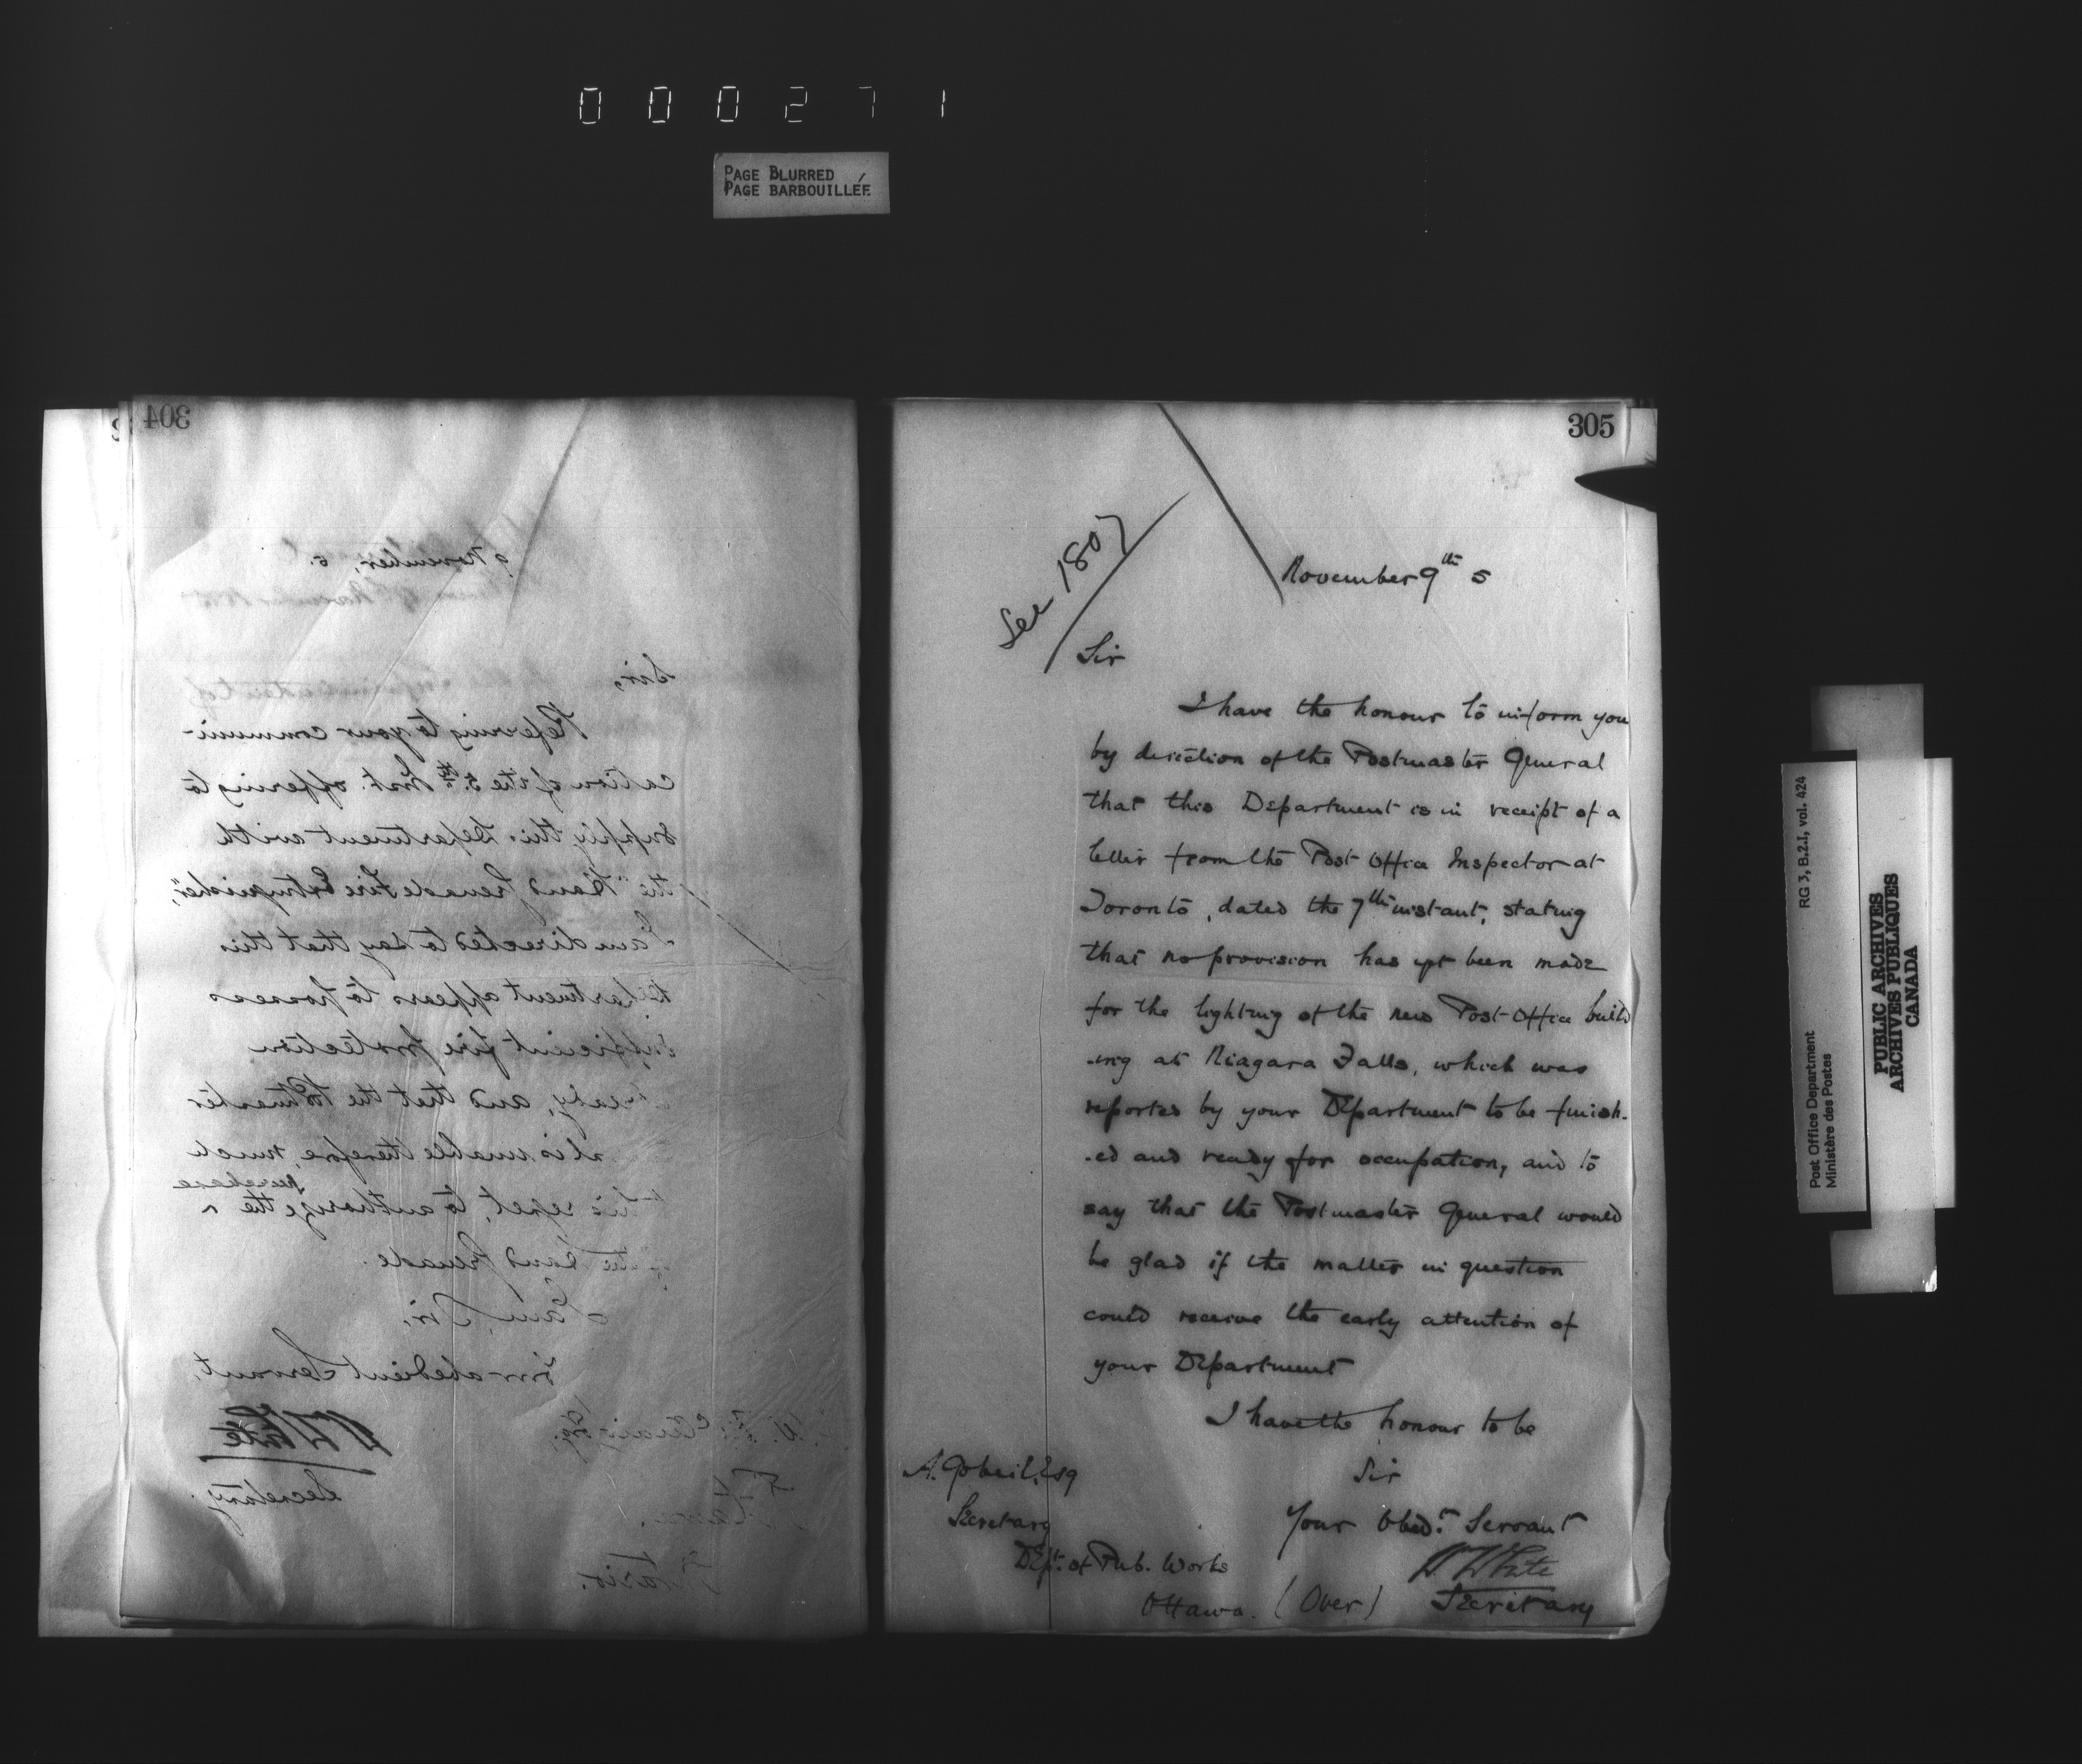 000271
PAGE BLURRED
PAGE BARBOUILLÉE
304
9 November, 5.
Sir,
Referring to your communi-
cation of the 5th Inst. offering to
supply this Department with
the "Hand Grenade Fire Extinguisher",
I am directed to say that this
Department appears to possess
sufficient fire protection
already, and that the Postmaster
is unable therefore, much
to his regret, to authorize the ^ purchase
of the Hand Grenade.
I am, Sir,
Your obedient Servant,
W White
Secretary.
Ontario.
305
See 1807
November 9th 5
Sir
I have the honour to inform you
by direction of the Postmaster General
that this Department is in receipt of a
letter from the Post Office Inspector at
Toronto, dated the 7th instant, stating
that no provision has yet been made
for the lighting of the new Post Office build
-ing at Niagara Falls, which was
reported by your Department to be finish-
-ed and ready for occupation, and to
say that the Postmaster General would
be glad if the matter in question
could receive the early attention of
your Department
I have the honour to be
Sir
Your Obedt. Servant
W White
Secretary
A. Gobeil, Esq
Secretary
Dept. of Pub. Works
Ottawa. (Over)
Post Office Department
Ministère des Postes
RG 3, B.2.I, vol. 424
PUBLIC ARCHIVES
ARCHIVES PUBLIQUES
CANADA